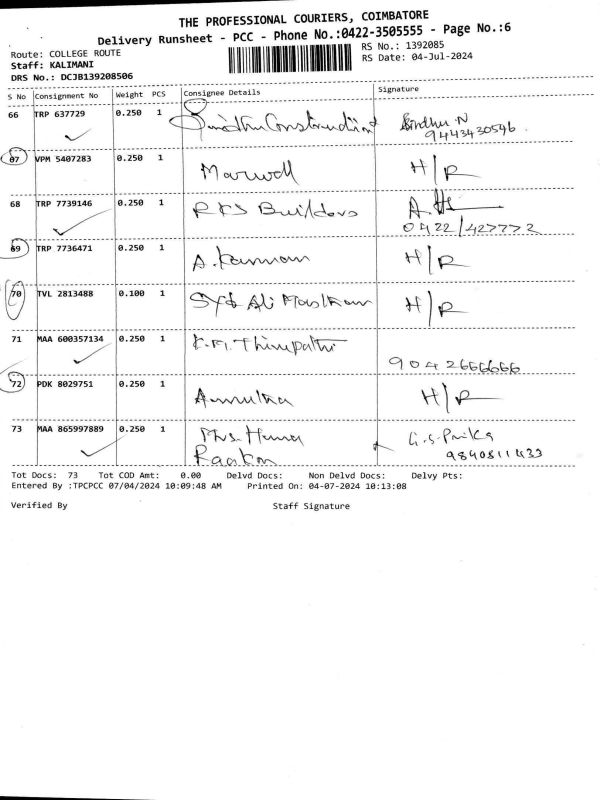 THE PROFESSIONAL COURIERS, COIMBATORE
Delivery Runsheet - PCC - Phone No.:0422-3505555 - Page No.:6
Route: COLLEGE ROUTE RS No.: 1392085
Staff: KALIMANI RS Date: 04-Jul-2024
DRS No.: DCJB139208506
S No Consignment No Weight PCS Consignee Details Signature
66 TRP 637729 0.250 1 Construction Sindhu.N
9443430546
67 VPM 5407283 0.250 1 Marwell H/R
68 TRP 7739146 0.250 1 RKS Builders
0422/427772
69 TRP 7736471 0.250 1 A. Kannan H/R
70 TVL 2813488 0.100 1 Ali H/R
71 MAA 600357134 0.250 1 K.M. Thirupathi
9042666666
72 PDK 8029751 0.250 1 H/R
73 MAA 865997889 0.250 1 Mrs. Hema G.S.
9840811433
Tot Docs: 73 Tot COD Amt: 0.00 Delvd Docs: Non Delvd Docs: Delvy Pts:
Entered By :TPCPCC 07/04/2024 10:09:48 AM Printed On: 04-07-2024 10:13:08
Verified By Staff Signature